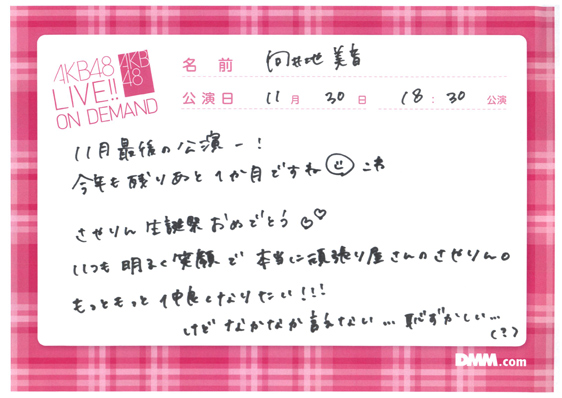 AKB48
LIVE!!
ON DEMAND
AKB
48
名 前 向井地 美音
公演日 11 月 30 日 18 : 30 公演
11月 最後の 公演 ー!
今年も 残りあと 1か月ですね
さやりん 生誕祭 おめでとう
いつも 明るく 笑顔で 本当に 頑張り屋さんの さやりん。
もっともっと 仲良くなりたい!!!
けど なかなか 言えない... 恥ずかしい...
(?)
DMM.com